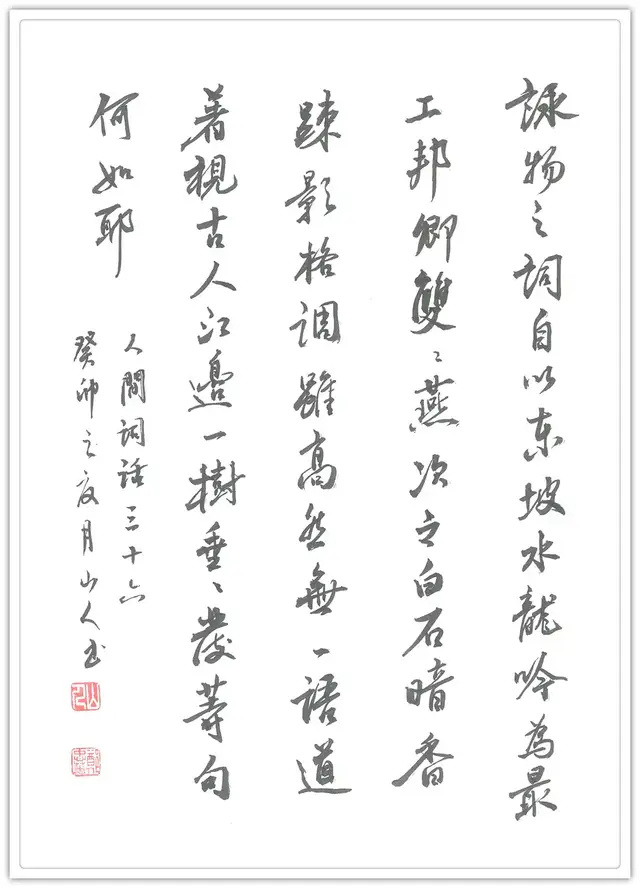 詠物之詞自以東坡水龍吟為最
工邦卿雙〻燕次之白石暗香
踈影格調雖高然無一語道
著視古人江邊一樹垂〻發等句
何如耶
人間詞話三十六
癸卯之夏月山人书
山人